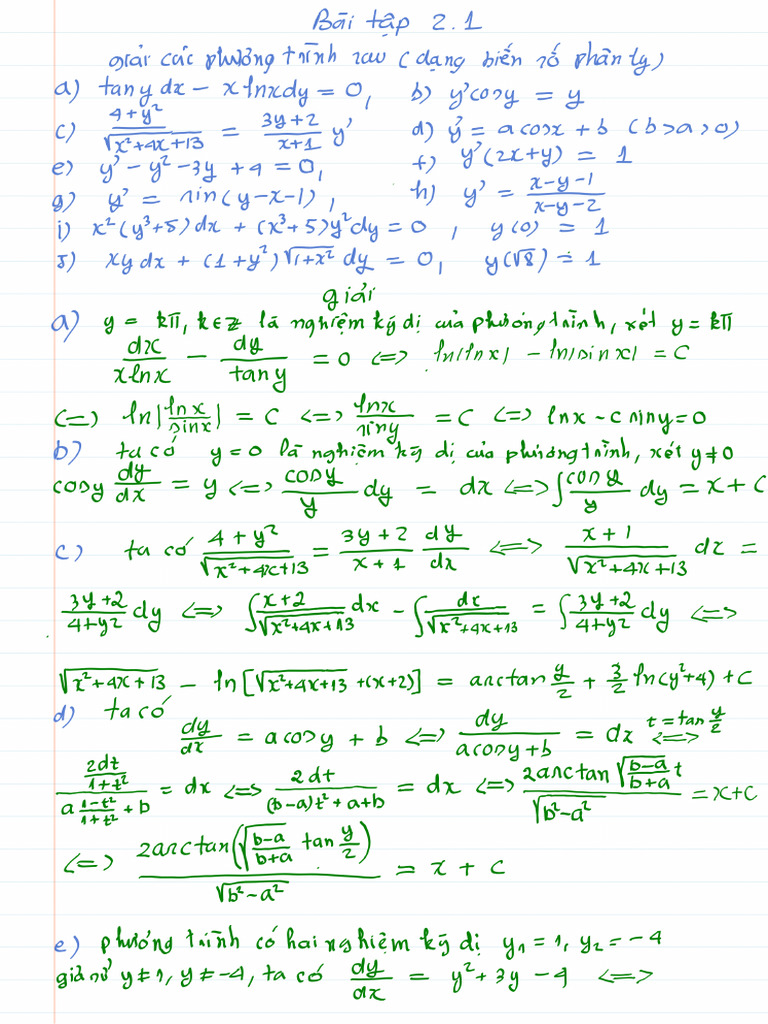 Bài tập 2.1
giải các phương trình sau (dạng biến số phân ly)
a) tany dx − xlnxdy = 0, b) y'cosy = y
c) \frac{4+y^2}{\sqrt{x^2+4x+13}} = \frac{3y+2}{x+1} y' d) y' = acosx + b (b>a>0)
e) y' − y^2 − 3y + 4 = 0, f) y'(2x+y) = 1
g) y' = sin(y−x−1), h) y' = \frac{x−y−1}{x−y−2}
i) x^2(y^3+5)dx + (x^3+5)y^2dy = 0, y(0) = 1
j) xydx + (1+y^2)\sqrt{1+x^2} dy = 0, y(√8) = 1
giải
a) y = kπ, k∈Z là nghiệm kỳ dị của phương trình, xét y = kπ
\frac{dx}{xlnx} − \frac{dy}{tany} = 0 <=> ln|lnx| − ln|sinx| = C
<=> ln|\frac{lnx}{sinx}| = C <=> \frac{lnx}{siny} = C <=> lnx − csiny = 0
b) ta có y = 0 là nghiệm kỳ dị của phương trình, xét y ≠ 0
cosy \frac{dy}{dx} = y <=> \frac{cosy}{y} dy = dx <=> ∫\frac{cosy}{y} dy = x + C
c) ta có \frac{4+y^2}{\sqrt{x^2+4x+13}} = \frac{3y+2}{x+1} \frac{dy}{dx} <=> \frac{x+1}{\sqrt{x^2+4x+13}} dx =
\frac{3y+2}{4+y^2} dy <=> ∫\frac{x+2}{\sqrt{x^2+4x+13}} dx − ∫\frac{dx}{\sqrt{x^2+4x+13}} = ∫\frac{3y+2}{4+y^2} dy <=>
\sqrt{x^2+4x+13} − ln[\sqrt{x^2+4x+13} + (x+2)] = arctan\frac{y}{2} + \frac{3}{2} ln(y^2+4) + C
d) ta có \frac{dy}{dx} = acosy + b <=> \frac{dy}{acosy+b} = dx \overset{t=tan\frac{y}{2}}{<=>}
\frac{\frac{2dt}{1+t^2}}{a\frac{1−t^2}{1+t^2}+b} = dx <=> \frac{2dt}{(b−a)t^2+a+b} = dx <=> \frac{2arctan\sqrt{\frac{b−a}{b+a}}t}{\sqrt{b^2−a^2}} = x+c
<=> \frac{2arctan(\sqrt{\frac{b−a}{b+a}} tan\frac{y}{2})}{\sqrt{b^2−a^2}} = x + c
e) phương trình có hai nghiệm kỳ dị y_1 = 1, y_2 = −4
giả sử y≠1, y≠−4, ta có \frac{dy}{dx} = y^2 + 3y − 4 <=>